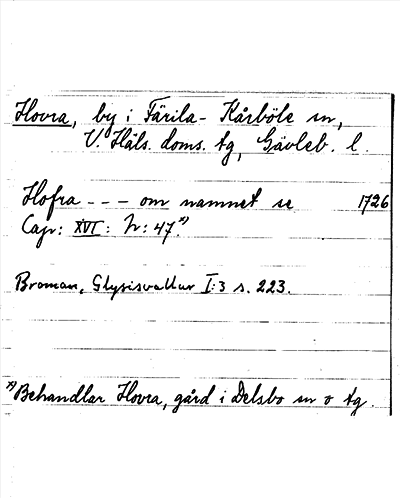 Hovra, by i Färila-Kårböle sn,
V. Häls. doms. tg, Gävleb. l.
Hofra --- om namnet se 1726
Cap: XVI: N: 47.*)
Broman, Glysisvallur I:3 s. 223.
*) Behandlar Hovra, gård i Delsbo sn o tg.